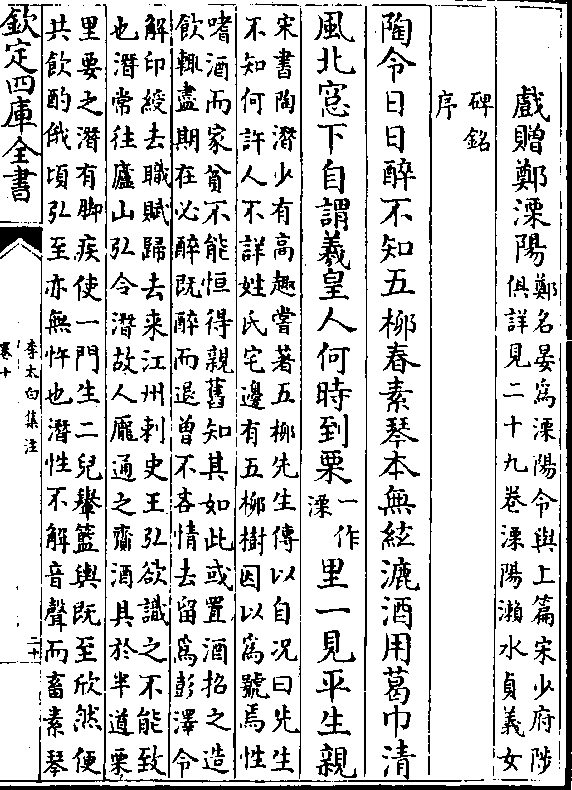 戲贈鄭溧陽鄭名晏爲溧陽令與上篇宋少府陟
俱詳見二十九卷溧陽瀨水貞義女
碑銘
序
陶令日日醉不知五柳春素琴本無絃漉酒用葛巾清
風北窓下自謂羲皇人何時到栗一作溧里一見平生親
宋書陶潛少有高趣嘗著五柳先生傳以自況曰先生
不知何許人不詳姓氏宅邊有五柳樹因以爲號焉性
嗜酒而家貧不能恒得親舊知其如此或置酒招之造
飲輒盡期在必醉既醉而退曾不吝情去留爲彭澤令
解印綬去職賦歸去来江州刺史王弘欲識之不能致
也潛常往廬山弘令潛故人龐通之齎酒具於半道栗
里要之潛有脚疾使一門生二兒轝籃輿既至欣然便
共飲酌俄頃弘至亦無忤也潛性不解音聲而畜素琴
欽定四庫全書
李太白集注
卷十
二十